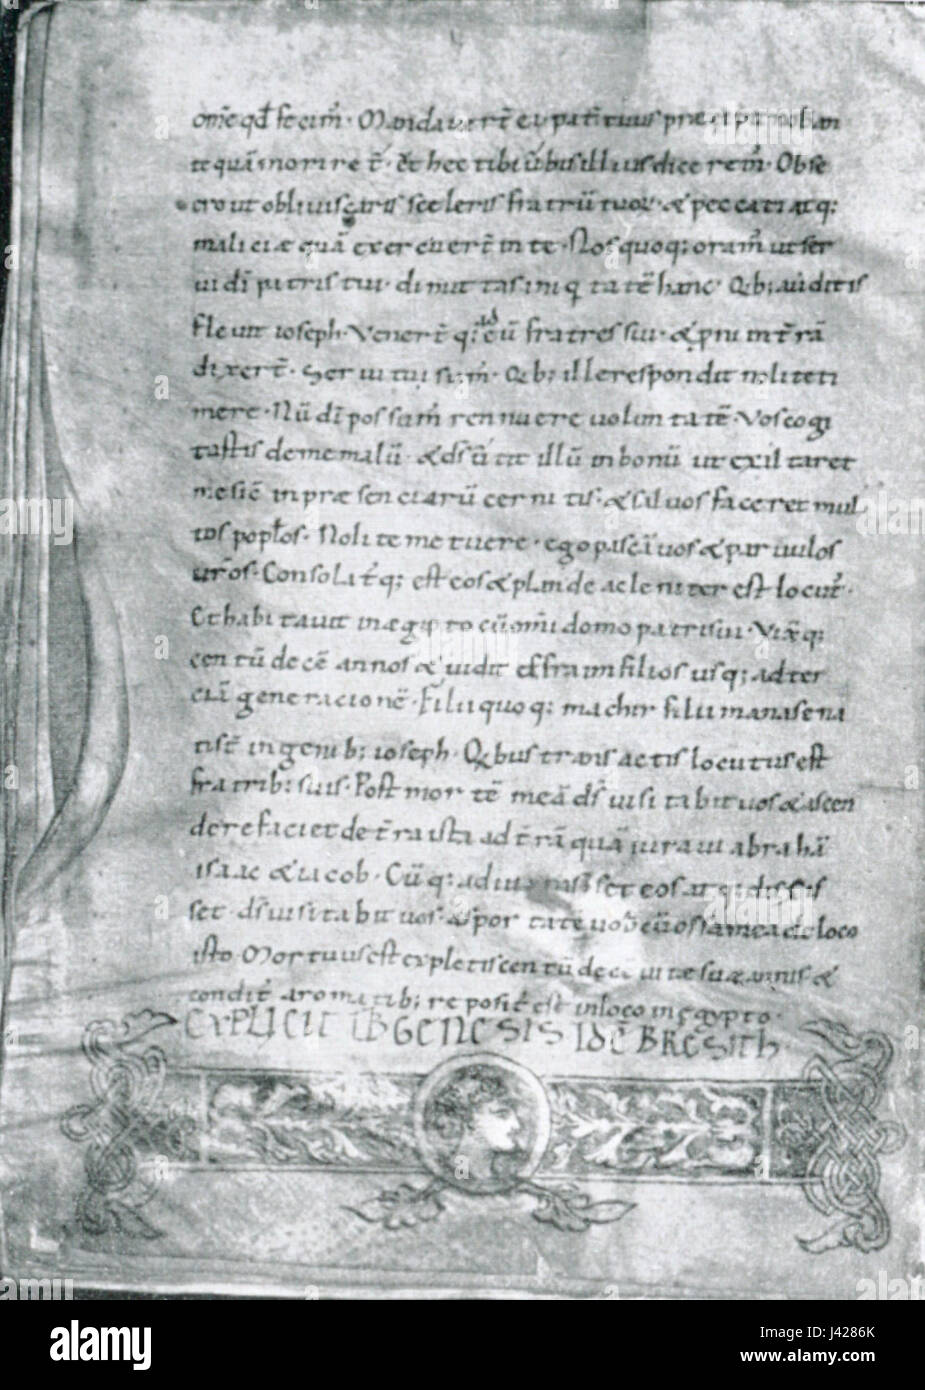 om̄e qd̄ fecim̄. Mandaver̄t ei pat̄ tuus præcipit nobis an
te quā morire t̄. Et hec tibi v̄bis illius dicerem̄. Obse
cro ut obliviscaris sceleris fratrū tuoꝝ. & peccati atq;
maliciæ quā exercuer̄t in te. Nos quoq; oram̄ ut ser
vi dī patris tui. dimittas iniqtatē hanc. Qb; auditis
flevit ioseph. Vener̄t q; ad eū fratres sui. & pni in t̄rā
dixer̄t. Servi tui sum̄. Qb; ille respondit nolite ti
mere. Nū dī possum̄ rennuere voluntatē. Vos cogi
tastis de me malū. & ds̄ v̄tit illū in bonū ut exaltaret
me sic̄ in præsenciarū cernitis. & salvos faceret mul
tos popłos. Nolite metuere. ego pascā vos & parvulos
vr̄os. Consolat̄q; est eos & blande ac leniter est locut̄.
Et habitavit in ægipto cū om̄i domo patris sui. Vixq;
centū decē annos & vidit effraim filios usq; ad ter
ciā generacionē. Filii quoq; machir filii manase na
ti st̄ in genib; ioseph. Qbus transactis locutus est
fratrib; suis. Post mortē meā ds̄ visitabit vos & ascen
dere faciet de t̄ra ista ad t̄rā quā iuravit abrahā
isaac & iacob. Cū q; adiurasset eos atq; dixis
set. ds̄ visitabit vos. asportate vobcū ossa mea de loco
isto. Mortuus est expletis centū decē vitæ suæ annis &
condit̄ aromatib; reposit̄ est in loco in ęgypto.
EXPLICIT LIB GENESIS IDĒ BRESITH
alamy stock photo
alamy
Image ID: J4286K
www.alamy.com